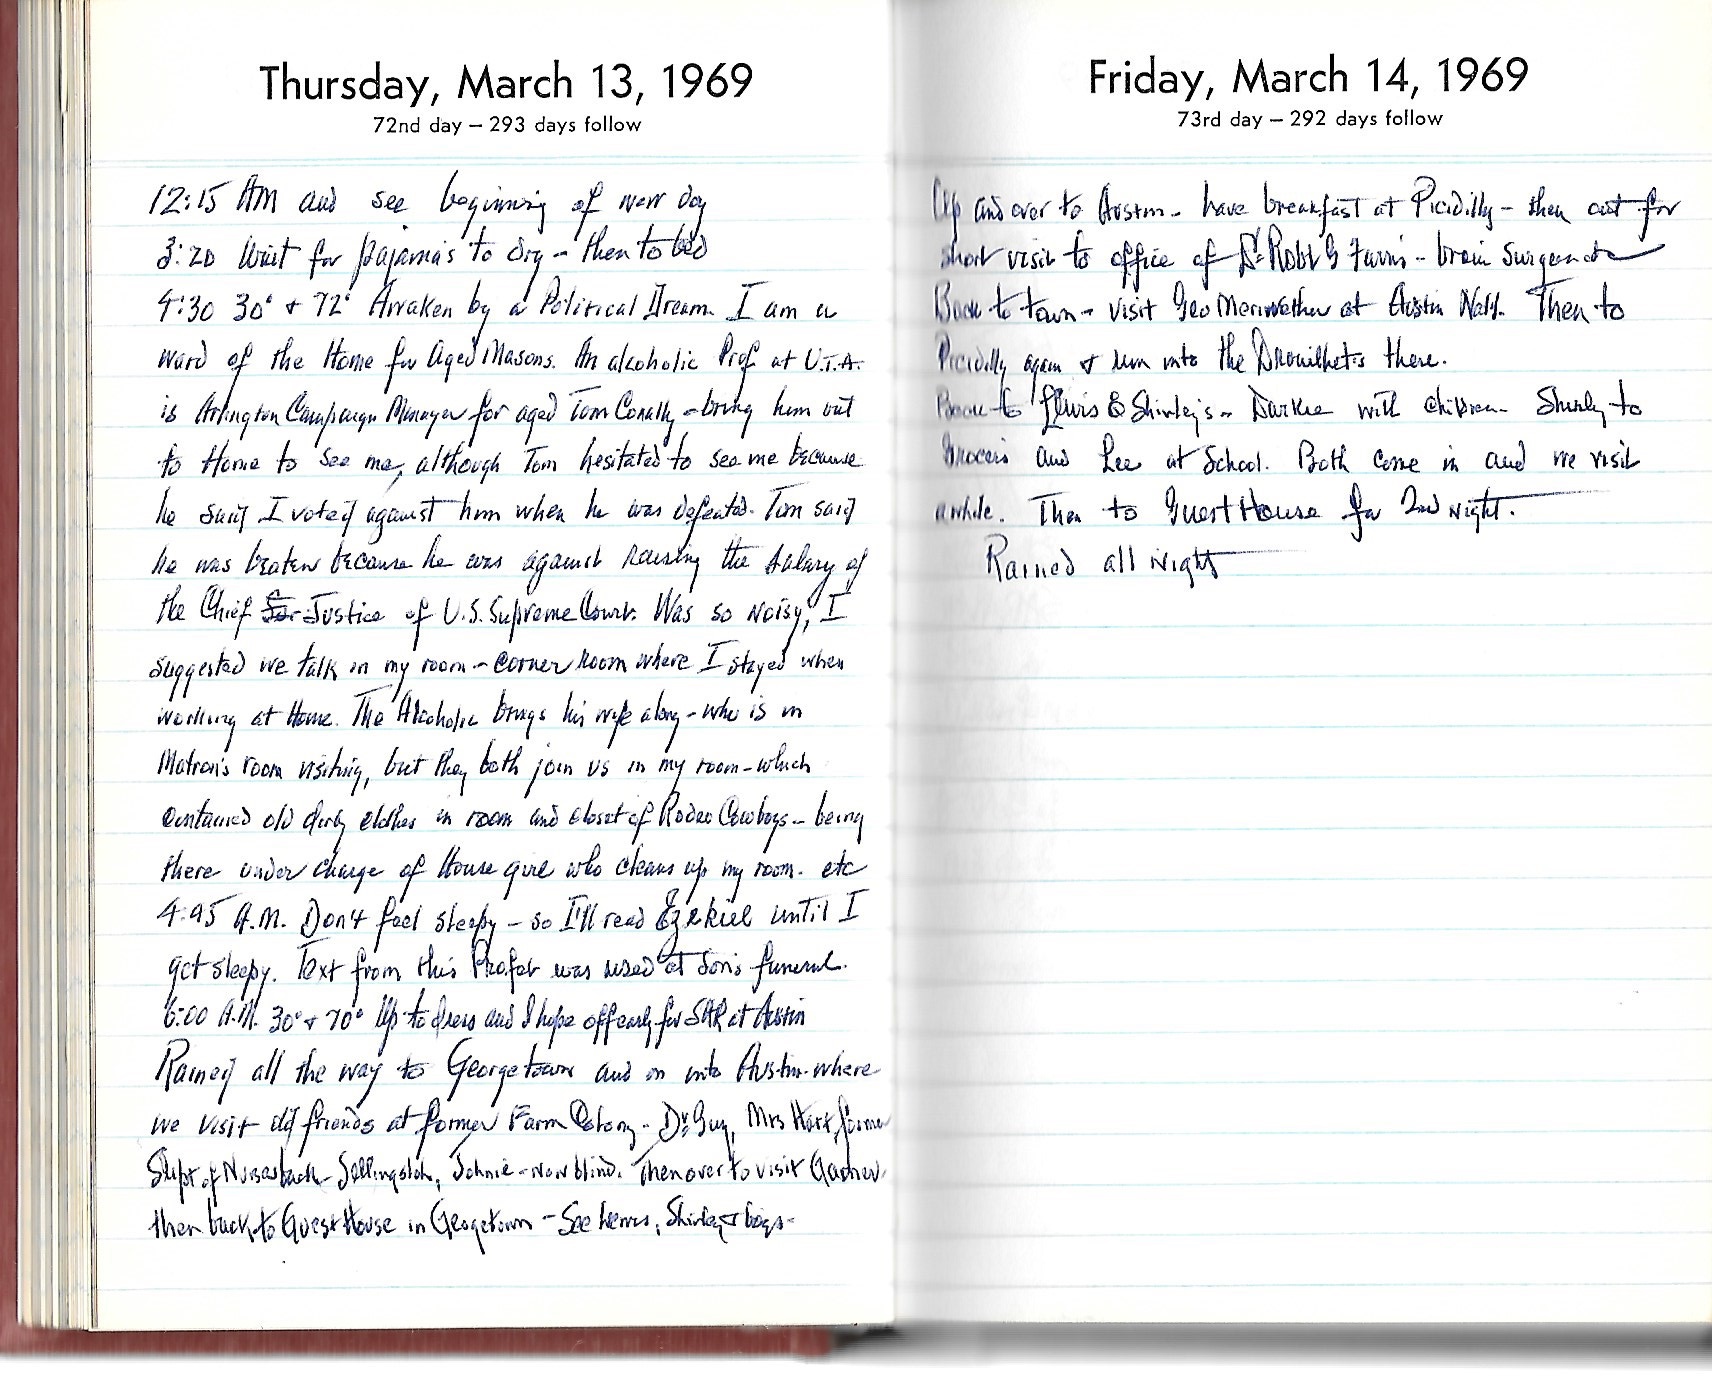 Thursday, March 13, 1969
72nd day – 293 days follow
12:15 AM and see beginning of new day
3:20 Wait for pajamas to dry – then to bed
4:30 30° & 72° Awaken by a Political Dream. I am a
ward of the Home for Aged Masons. An alcoholic Prof at U.T.A.
is Arlington Campaign Manager for aged Tom Conally – bring him out
to Home to see me, although Tom hesitated to see me because
he said I voted against him when he was defeated. Tom said
he was beaten because he was against raising the salary of
the Chief Justice of U.S. Supreme Court. Was so noisy, I
suggested we talk in my room – corner room where I stayed when
working at Home. The Alcoholic brings his wife along – who is in
Matron's room visiting, but they both join us in my room – which
contained old dirty clothes in room and closet of Rodeo Cowboys – being
there under charge of House girl who cleans up my room. etc
4:45 A.M. Don't feel sleepy – so I'll read Ezekiel until I
get sleepy. Text from this Profet was used at Son's funeral.
6:00 A.M. 30° & 70° Up to dress and I hope off early for SAR at Austin
Rained all the way to Georgetown and on into Austin – where
we visit old friends at former Farm Colony – Dr Guy, Mrs Hart, former
Supt of Nurses back – Sellingsloh, Johnie – now blind. Then over to visit
then back to Guest House in Georgetown – See Lewis, Shirley & boys –
Friday, March 14, 1969
73rd day – 292 days follow
Up and over to Austin – have breakfast at Picidilly – then out for
short visit to office of Dr Robt G Farris – brain surgeon
Back to town – visit Geo Meriwether at Austin Natl. Then to
Picidilly again & run into the Drouilhets there.
Back to Lewis & Shirley's – with children – Shirley to
Grocers and Lee at School. Both come in and we visit
awhile. Then to Guest House for 2nd night.
Rained all night